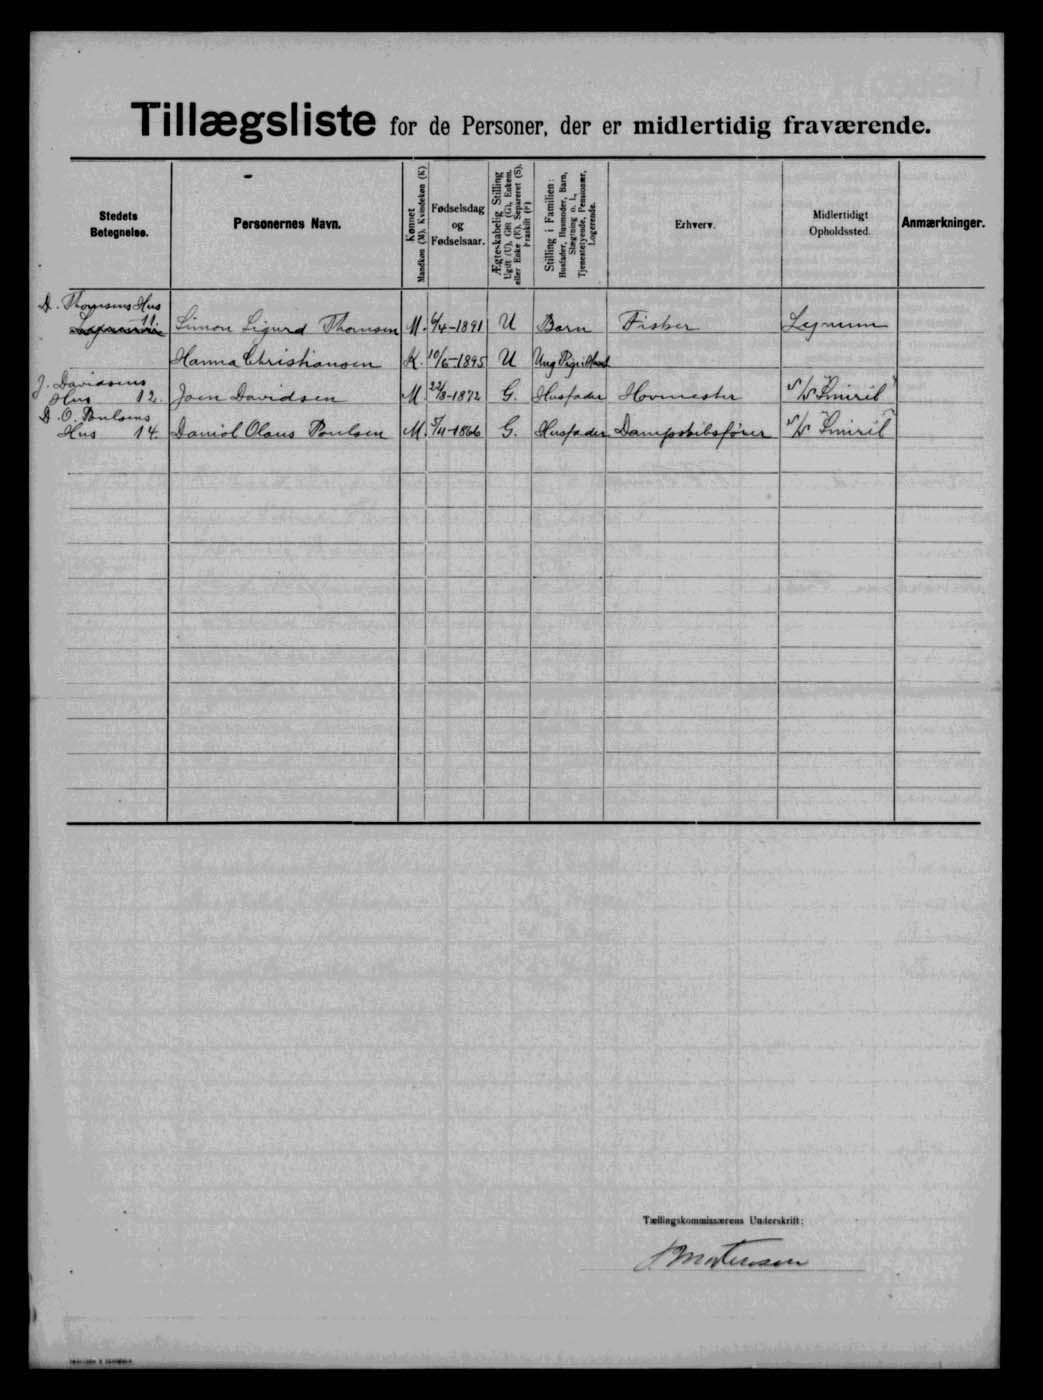 Tillægsliste for de Personer, der er midlertidig fraværende.
Stedets Betegnelse.
Personernes Navn.
Kønnet Mandkøn (M). Kvindekøn (K)
Fødselsdag og Fødselsaar.
Ægteskabelig Stilling Ugift (U), Gift (G), Enkem. eller Enke (E), Separeret (S). Fraskilt (F)
Stilling i Familien: Husfader, Husmoder, Barn, Slægtning o. l., Tjenestetyende, Pensionær, Logerende.
Erhverv.
Midlertidigt Opholdssted.
Anmærkninger.
D. Thomsens Hus
11. Simon Sigurd Thomsen M. 6/4-1891 U Barn Fisker
Hanna Christiansen K. 10/6-1895 U Ung Pige
J. Davidsens
Hus 12. Joen Davidsen M. 22/8-1872 G. Husfader Hovmester S/S "Smiril"
D. O. Poulsens
Hus 14. Daniel Olaus Poulsen M. 5/11-1866 G. Husfader Dampskibsfører S/S "Smiril"
Tællingskommissærens Underskrift: